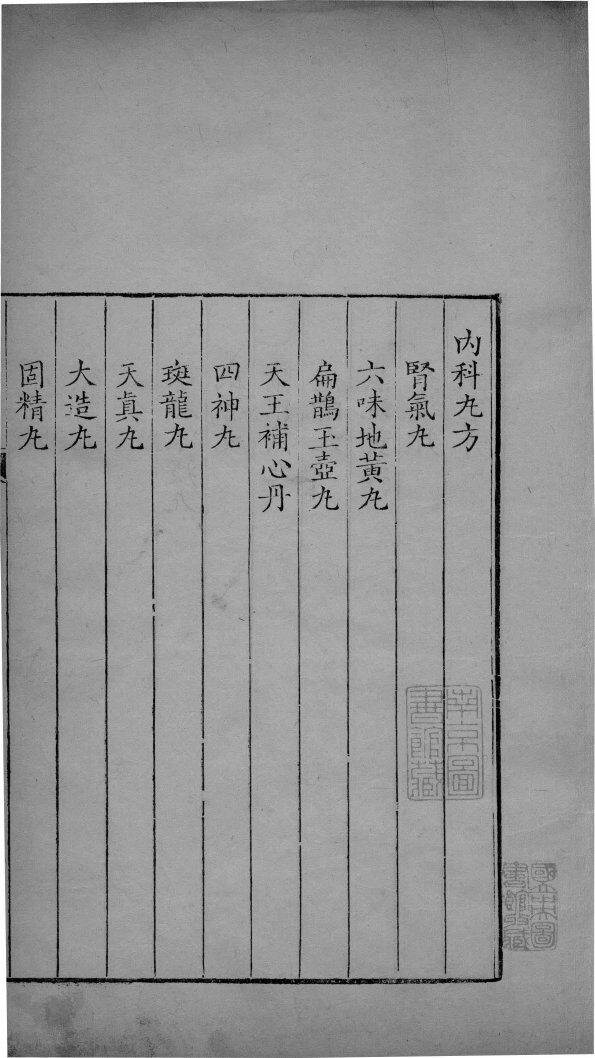 内科丸方
腎氣丸
六味地黃丸
扁鵲玉壺丸
天王補心丹
四神丸
斑龍丸
天眞丸
大造丸
固精丸
南京圖
書館藏
國立中央圖
書館收藏